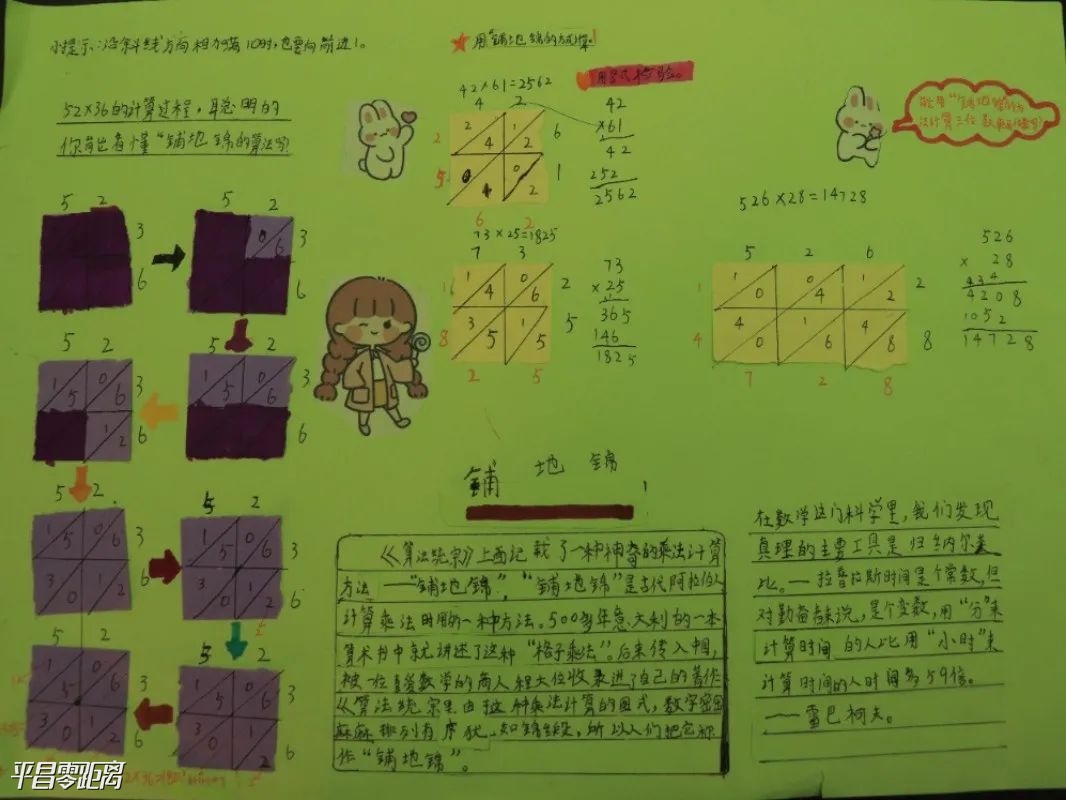 小提示:沿斜线方向相加满10时,也要向前进1。
52×36的计算过程,聪明的
你能看懂“铺地锦的算法吗?
用“铺地锦的方式算。
用竖式检验。
42×61=2562
4 2
2 2 1 6
4 2
5 0 0 1
4 2
6 2
42
×61
42
252
2562
73×25=1825
7 3
1 1 0 2
4 6
8 3 1 5
5 5
2 5
73
×25
365
146
1825
526×28=14728
5 2 6
1 1 0 1 2
0 4 2
4 4 1 4 8
0 6 8
7 2 8
526
× 28
4208
1052
14728
5 2
3
6
5 2
0 6 3
6
5 2
1 5 0 6 3
1 2 6
5 2
1 5 0 6 3
6
5 2
1 5 0 6 3
3 0 1 2 6
5 2
1 5 0 6 3
3 0 1 2 6
5 2
1 5 0 6 3
3 0 1 2 6
5 2
1 5 0 6 3
3 0 1 2 6
铺地锦
《算法统宗》上面记载了一种神奇的乘法计算
方法——“铺地锦”,“铺地锦”是古代阿拉伯人
计算乘法时用的一种方法。500多年意大利的一本
算术书中就讲述了这种“格子乘法”。后来传入中国,
被一位喜爱数学的商人程大位收录进了自己的著作
《算法统宗里由于这种乘法计算的图式,数字密密
麻麻排列有序犹如锦缎,所以人们把它称
作“铺地锦”。
在数学这门科学里,我们发现
真理的主要工具是归纳
比。—拉普拉斯时间是个常数,但
对勤奋者来说,是个变数,用“分”来
计算时间的人比用“小时”来
计算时间的人时间多59倍。
——雷巴柯夫。
平昌零距离